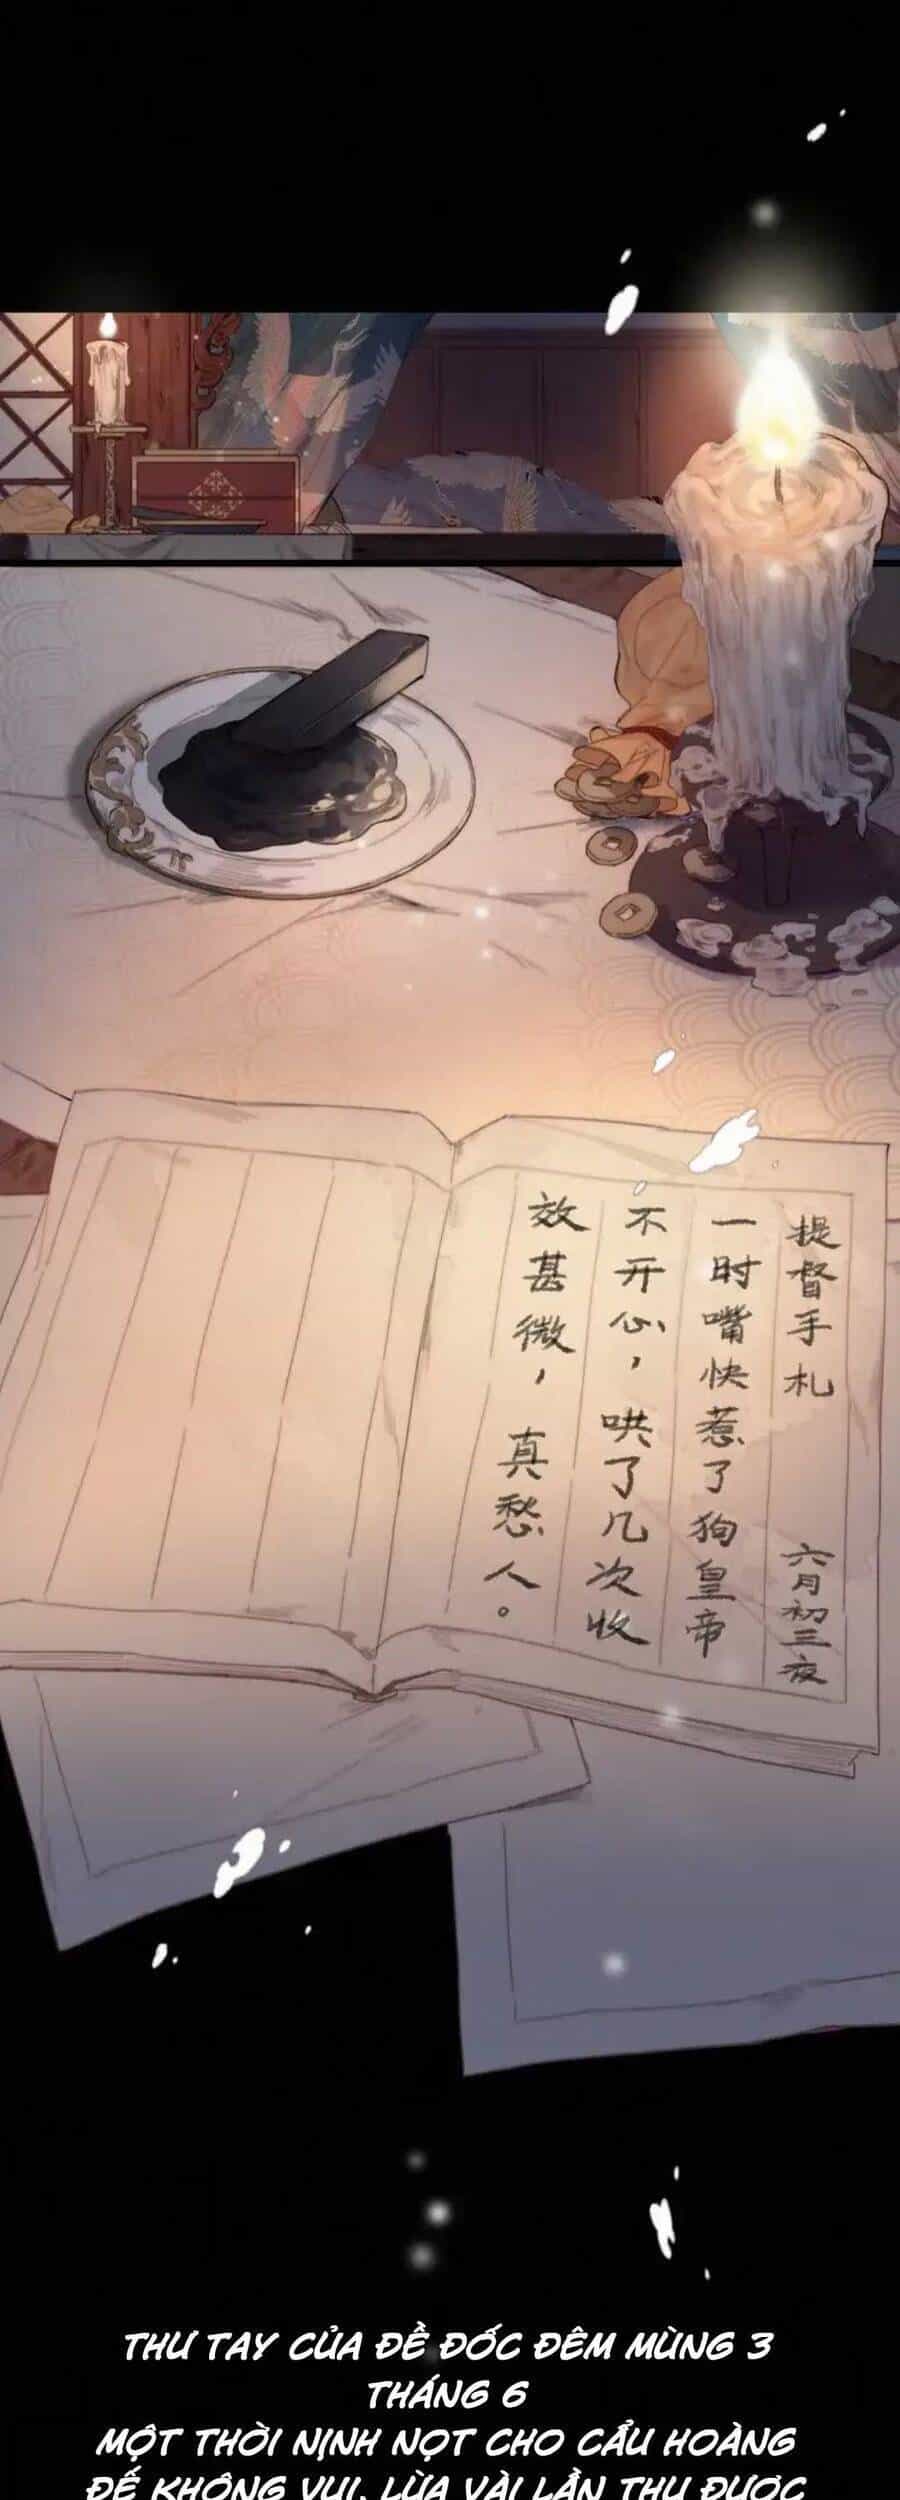 提督手札 六月初三夜
一时嘴快惹了狗皇帝
不开心，哄了几次收
效甚微，真愁人。
THƯ TAY CỦA ĐỀ ĐỐC ĐÊM MÙNG 3
THÁNG 6
MỘT THỜI NỊNH NỌT CHO CẨU HOÀNG
ĐẾ KHÔNG VUI, LỪA VÀI LẦN THU ĐƯỢC